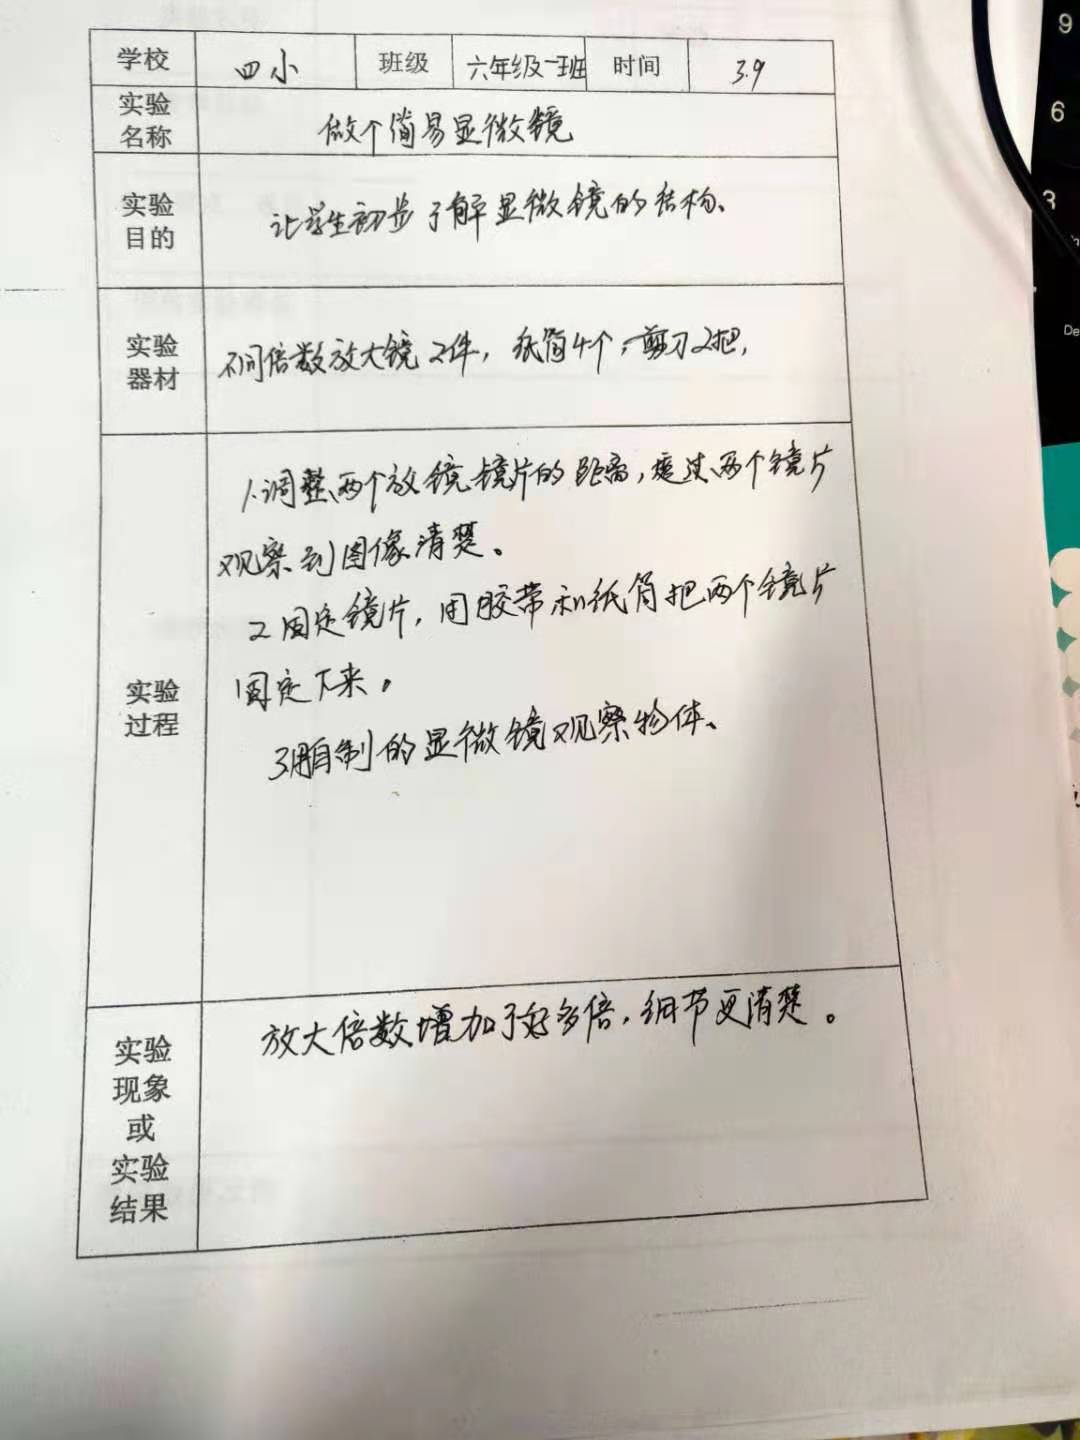 学校 四小 班级 六年级一班 时间 3.9
实验名称 做个简易显微镜
实验目的 让学生初步了解显微镜的结构、
实验器材 不同倍数放大镜2件，纸筒4个，剪刀2把，
实验过程
1.调整两个放镜镜片的距离，透过两个镜片
观察到图像清楚。
2 固定镜片，用胶带和纸筒把两个镜片
固定下来。
3用自制的显微镜观察物体、
实验现象或实验结果
放大倍数增加了好多倍，细节更清楚。
9
6
3
De